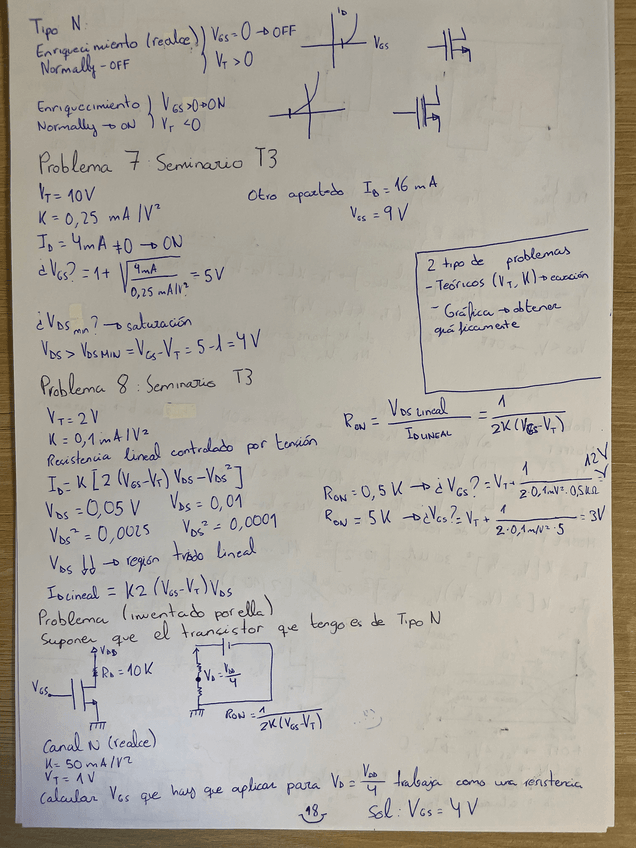 Tipo N
Enriquecimiento (realce) } V_GS = 0 → OFF
Normally - OFF } V_T > 0
I_D
V_GS
Enriquecimiento } V_GS > 0 → ON
Normally → ON } V_T < 0
Problema 7: Seminario T3
V_T = 10V
K = 0,25 mA/V²
I_D = 4mA ≠ 0 → ON
¿V_GS? = 1 + √(4mA / 0,25 mA/V²) = 5V
Otro apartado I_D = 16 mA
V_GS = 9 V
¿V_DS mn? → saturación
V_DS > V_DS MIN = V_GS - V_T = 5 - 1 = 4V
2 tipo de problemas
- Teóricos (V_T, K) → ecuación
- Gráfica → obtener
gráficamente
Problema 8: Seminario T3
V_T = 2V
K = 0,1 mA/V²
Resistencia lineal controlado por tensión
I_D = K [2 (V_GS - V_T) V_DS - V_DS²]
V_DS = 0,05 V V_DS = 0,01
V_DS² = 0,0025 V_DS² = 0,0001
V_DS ↓↓ → región triodo lineal
I_D lineal = K2 (V_GS - V_T) V_DS
R_ON = V_DS lineal / I_D LINEAL = 1 / 2K(V_GS - V_T)
R_ON = 0,5 K → ¿V_GS? = V_T + 1 / 2·0,1mV²·0,5KΩ = 12V
R_ON = 5 K → ¿V_GS? = V_T + 1 / 2·0,1m/V²·5 = 3V
Problema (inventado por ella)
Suponer que el transistor que tengo es de Tipo N
V_DD
R_D = 10K
V_GS
V_D = V_DD/4
R_ON = 1 / 2K(V_GS - V_T)
Canal N (realce)
K = 50 mA/V²
V_T = 1V
Calcular V_GS que hay que aplicar para V_D = V_DD/4 trabaja como una resistencia
18
Sol: V_GS = 4 V